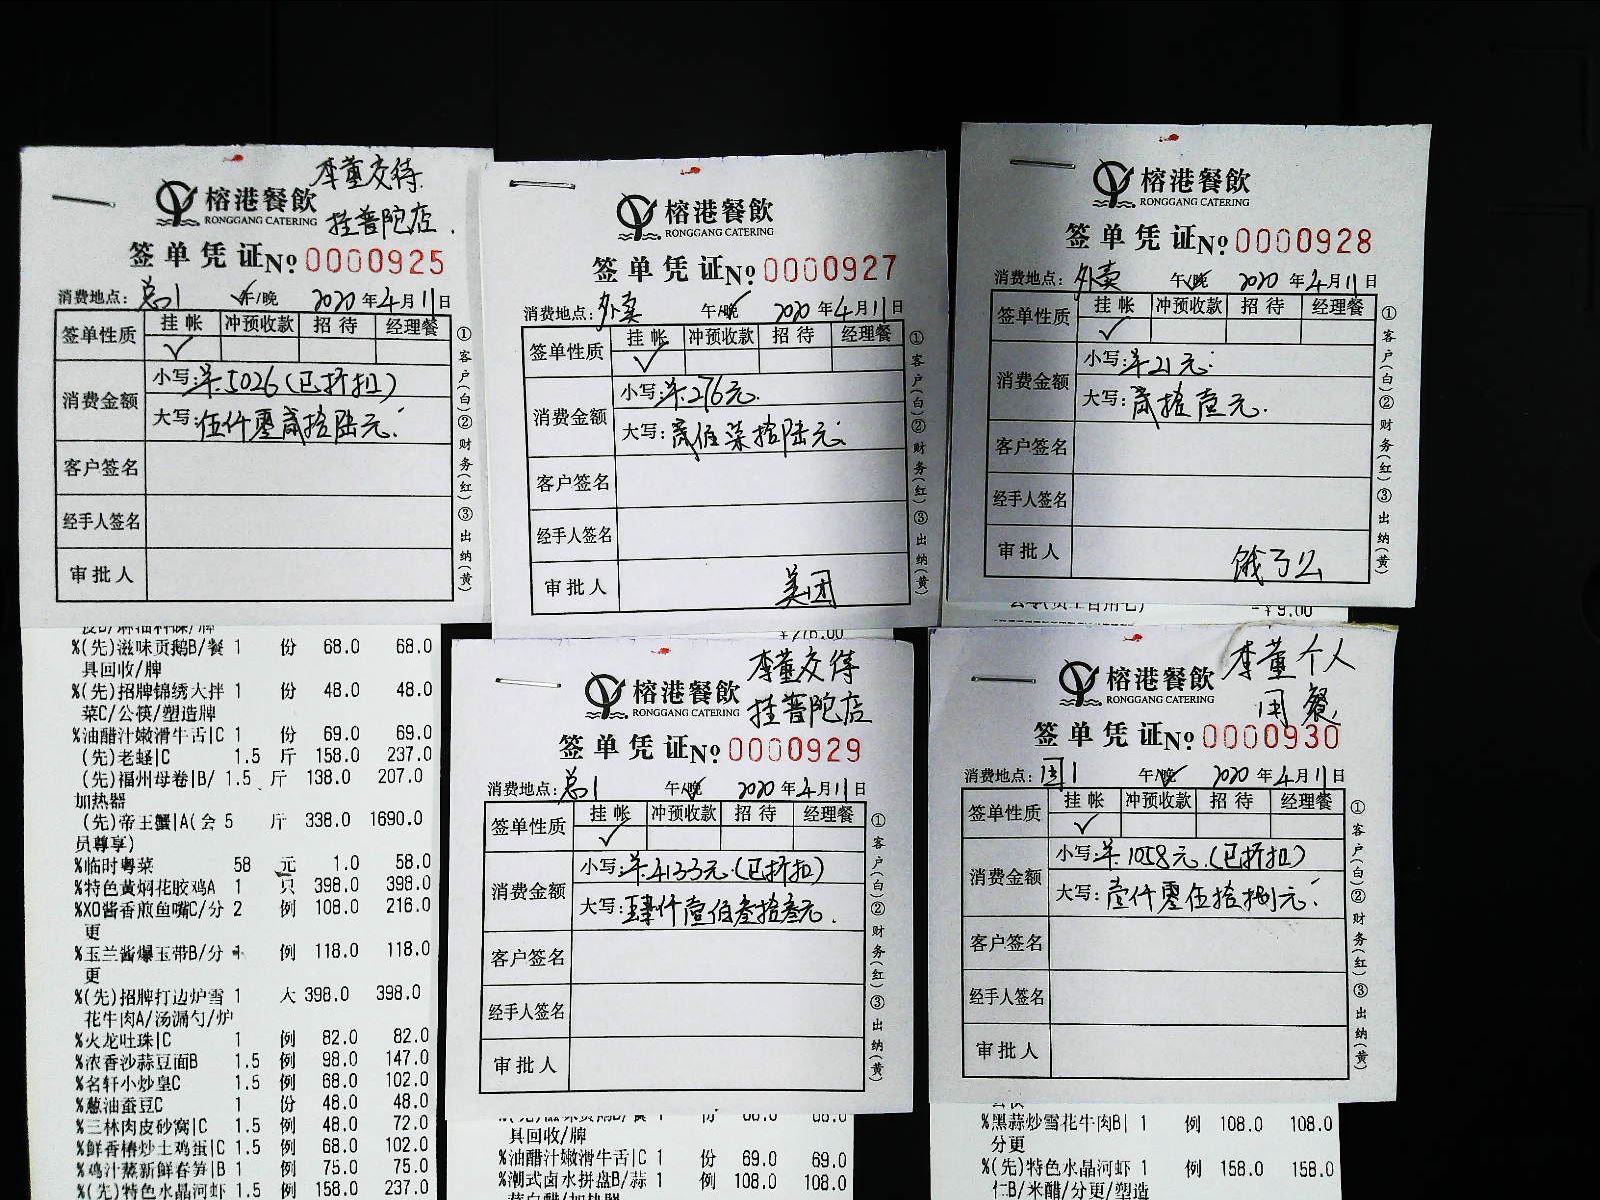 李董交待
挂普陀店.
榕港餐飲
RONGGANG CATERING
签单凭证 No 0000925
消费地点: 总1 午/晚 2020 年 4 月 11 日
签单性质 挂帐 冲预收款 招待 经理餐
消费金额
小写: 羊5026 (已折扣)
大写: 伍仟零贰拾陆元.
客户签名
经手人签名
审批人
①客户(白)②财务(红)③出纳(黄)
%(先)滋味贡鹅B/餐 1 份 68.0 68.0
具回收/牌
%(先)招牌锦绣大拌 1 份 48.0 48.0
菜C/公筷/塑造牌
%油醋汁嫩滑牛舌|C 1 份 69.0 69.0
(先)老蛏|C 1.5 斤 158.0 237.0
(先)福州母卷|B/ 1.5 斤 138.0 207.0
加热器
(先)帝王蟹|A(会 5 斤 338.0 1690.0
员尊享)
%临时粤菜 58 元 1.0 58.0
%特色黄焖花胶鸡A 1 只 398.0 398.0
%XO酱香煎鱼嘴C/分 2 例 108.0 216.0
更
%玉兰酱爆玉带B/分 1 例 118.0 118.0
更
%(先)招牌打边炉雪 1 大 398.0 398.0
花牛肉A/汤漏勺/炉
%火龙吐珠|C 1 例 82.0 82.0
%浓香沙蒜豆面B 1.5 例 98.0 147.0
%名轩小炒皇C 1.5 例 68.0 102.0
%葱油蚕豆C 1 份 48.0 48.0
%三林肉皮砂窝|C 1.5 例 48.0 72.0
%鲜香椿炒土鸡蛋|C 1.5 例 68.0 102.0
%鸡汁蒸新鲜春笋|B 1 例 75.0 75.0
%(先)特色水晶河虾 1.5 例 158.0 237.0
榕港餐飲
RONGGANG CATERING
签单凭证 No 0000927
消费地点: 外卖 午/晚 2020 年 4 月 11 日
签单性质 挂帐 冲预收款 招待 经理餐
消费金额
小写: 羊276元.
大写: 贰佰柒拾陆元.
客户签名
经手人签名
审批人 美团
①客户(白)②财务(红)③出纳(黄)
¥276.00
榕港餐飲
RONGGANG CATERING
签单凭证 No 0000928
消费地点: 外卖 午/晚 2020 年 4 月 11 日
签单性质 挂帐 冲预收款 招待 经理餐
消费金额
小写: 羊21元.
大写: 贰拾壹元.
客户签名
经手人签名
审批人 饿了么
①客户(白)②财务(红)③出纳(黄)
-¥9.00
李董交待
挂普陀店
榕港餐飲
RONGGANG CATERING
签单凭证 No 0000929
消费地点: 总1 午/晚 2020 年 4 月 11 日
签单性质 挂帐 冲预收款 招待 经理餐
消费金额
小写: 羊4133元.(已折扣)
大写: 肆仟壹佰叁拾叁元.
客户签名
经手人签名
审批人
①客户(白)②财务(红)③出纳(黄)
具回收/牌
%油醋汁嫩滑牛舌|C 1 份 69.0 69.0
%潮式卤水拼盘B/蒜 1 例 108.0 108.0
李董个人
用餐
榕港餐飲
RONGGANG CATERING
签单凭证 No 0000930
消费地点: 国1 午/晚 2020 年 4 月 11 日
签单性质 挂帐 冲预收款 招待 经理餐
消费金额
小写: 羊1058元.(已折扣)
大写: 壹仟零伍拾捌元.
客户签名
经手人签名
审批人
①客户(白)②财务(红)③出纳(黄)
%黑蒜炒雪花牛肉B| 1 例 108.0 108.0
分更
%(先)特色水晶河虾 1 例 158.0 158.0
仁B/米醋/分更/塑造